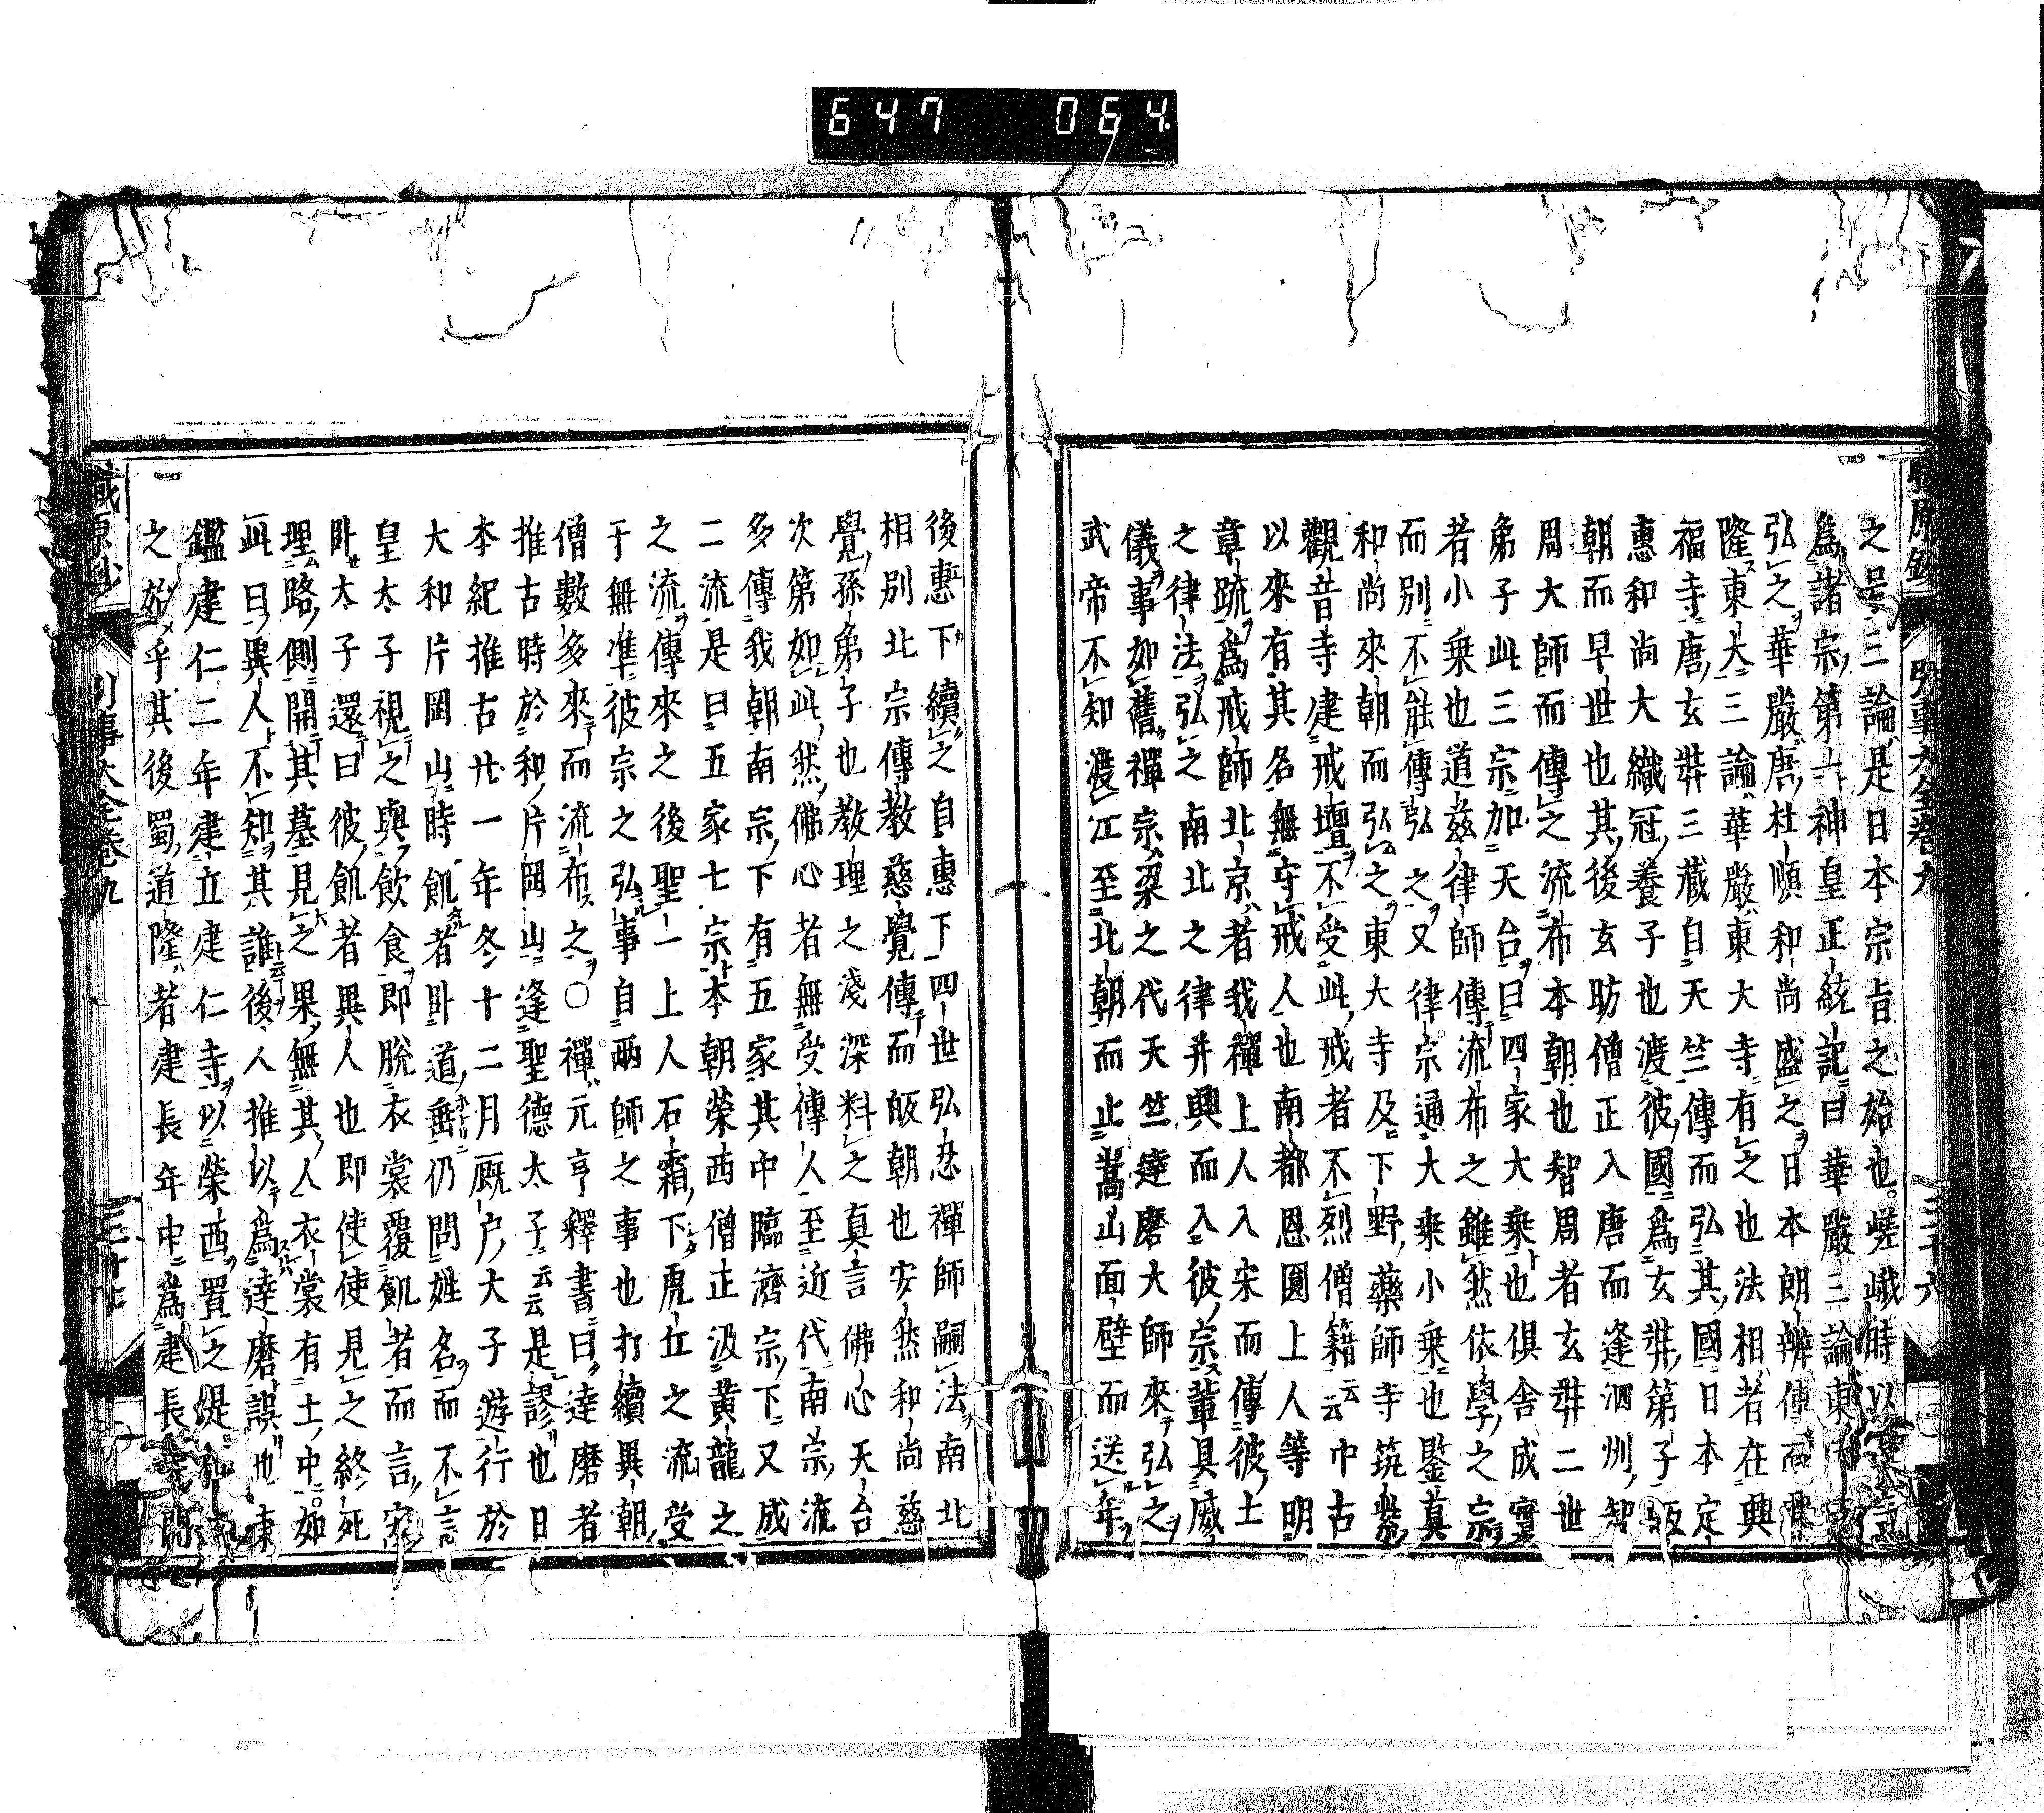 647 064
引事大全卷九
三十六
之是三論是日本宗旨之始也嵯峨時以
爲諸宗第六神皇正統記曰華嚴三論東
弘之華嚴唐杜順和尚盛之日本朗辨傳而
隆東大三論華嚴東大寺有之也法相者在興
福寺唐玄弉三藏自天竺傳而弘其國日本定
惠和尚大織冠養子也渡彼國爲玄弉第子皈
朝而早世也其後玄昉僧正入唐而逢泗州智
周大師而傳之流布本朝也智周者玄弉二世
弟子此三宗加天台曰四家大乘也俱舍成實
者小乗也道兹律師傳流布之雖然依學之宗
而別不能傳弘之又律宗通大乗小乗也鑒真
和尚來朝而弘之東大寺及下野藥師寺筑紫
觀音寺建戒壇不受此戒者不烈僧籍云云中古
以來有其名無守戒人也南都恩圓上人等明
章疏爲戒師北京者我禪上人入宋而傳彼土
之律法弘之南北之律并興而入彼宗輩具威
儀事如舊禪宗梁之代天竺達磨大師來弘之
武帝不知渡江至北朝而止嵩山面壁而送年
後惠下續之自惠下四世弘忍禪師嗣法南北
相別北宗傳教慈覺傳而皈朝也安然和尚慈
覺孫弟子也教理之淺深料之真言佛心天台
次第如此然佛心者無受傳人至近代南宗流
多傳我朝南宗下有五家其中臨濟宗下又成
二流是曰五家七宗本朝榮西僧正汲黄龍之
之流傳來之後聖一上人石霜下虎丘之流受
于無準彼宗之弘事自兩師之事也打續異朝
僧數多來而流布之〇禪元亨釋書曰達磨者
推古時於和片岡山逢聖德太子云云是謬也日
本紀推古廿一年冬十二月厩户大子遊行於
大和片岡山時飢者卧道垂仍問姓名而不言
皇太子視之與飲食即脫衣裳覆飢者而言安
卧太子還曰彼飢者異人也即使使見之終死
埋路側開其墓見之果無其人衣裳有土中如
此曰異人不知其誰後人推以爲達磨誤也東
鑑建仁二年建立建仁寺以榮西置之是
之始乎其後蜀道隆者建長年中爲建長
引事大全卷九
三十七